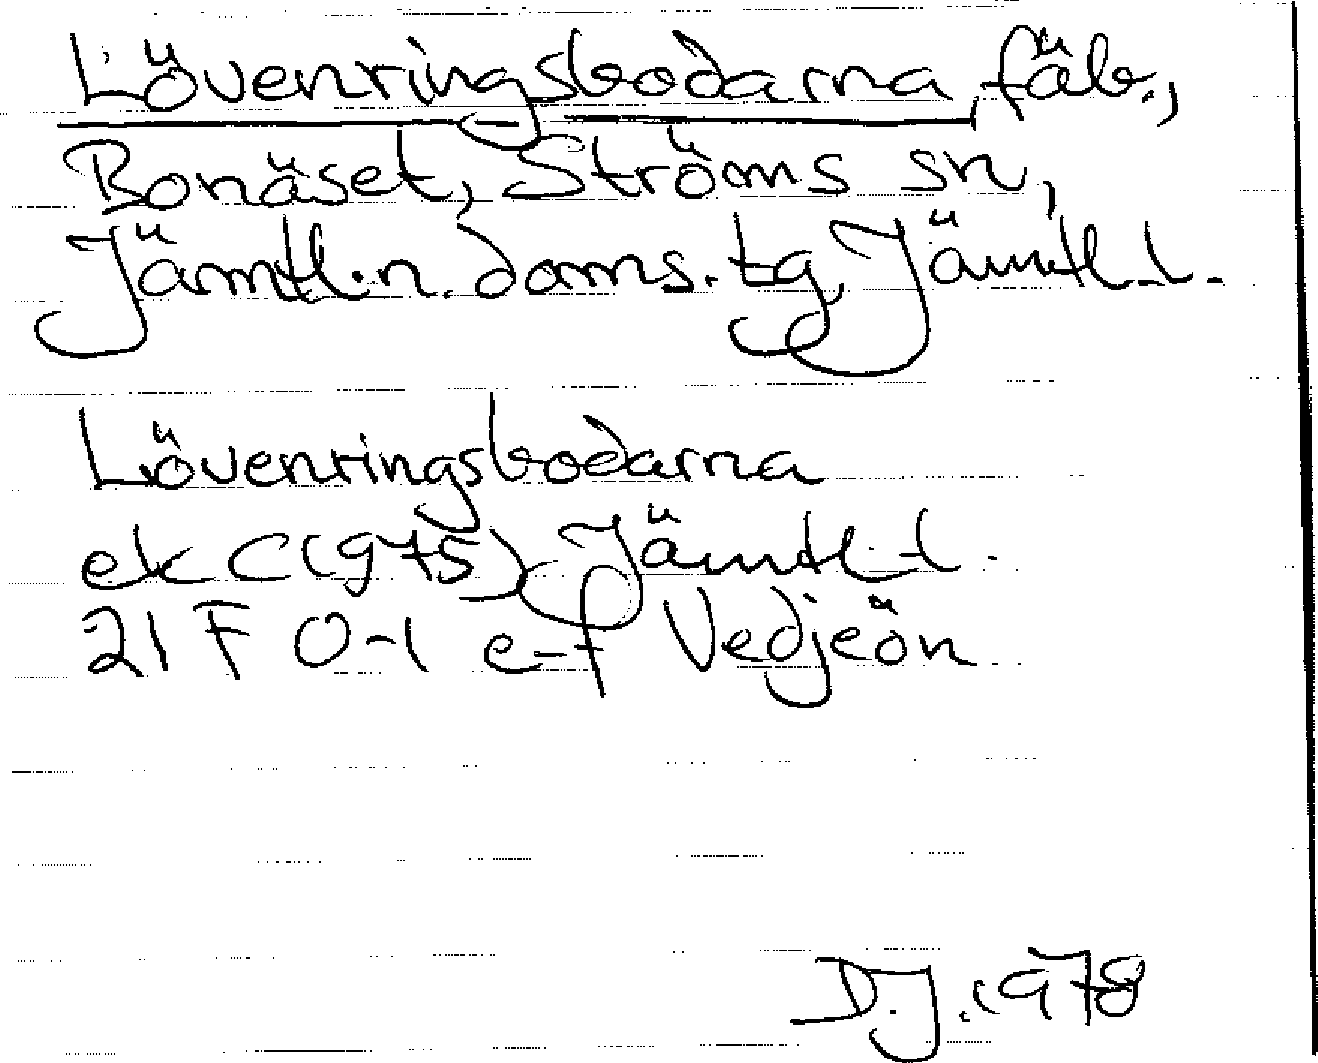 Lövenringsbodarna, fäb.,
Bonäset, Ströms sn,
Jämtl.n. doms. tg, Jämtl. l.
Lövenringsbodarna
ek C (1975) Jämtl. l.
21 F 0-1 e-f Vedjeön
D.J. 1978